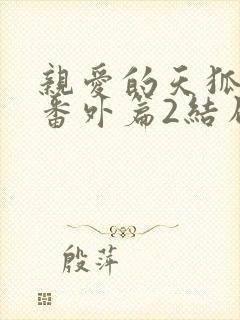 親愛的天狐
番外篇2結
殷萍